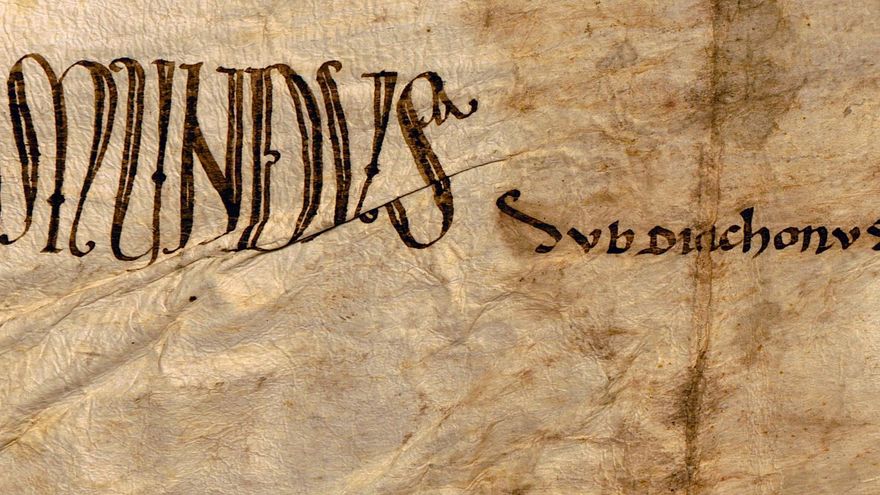 MUNDUS subdiachonus